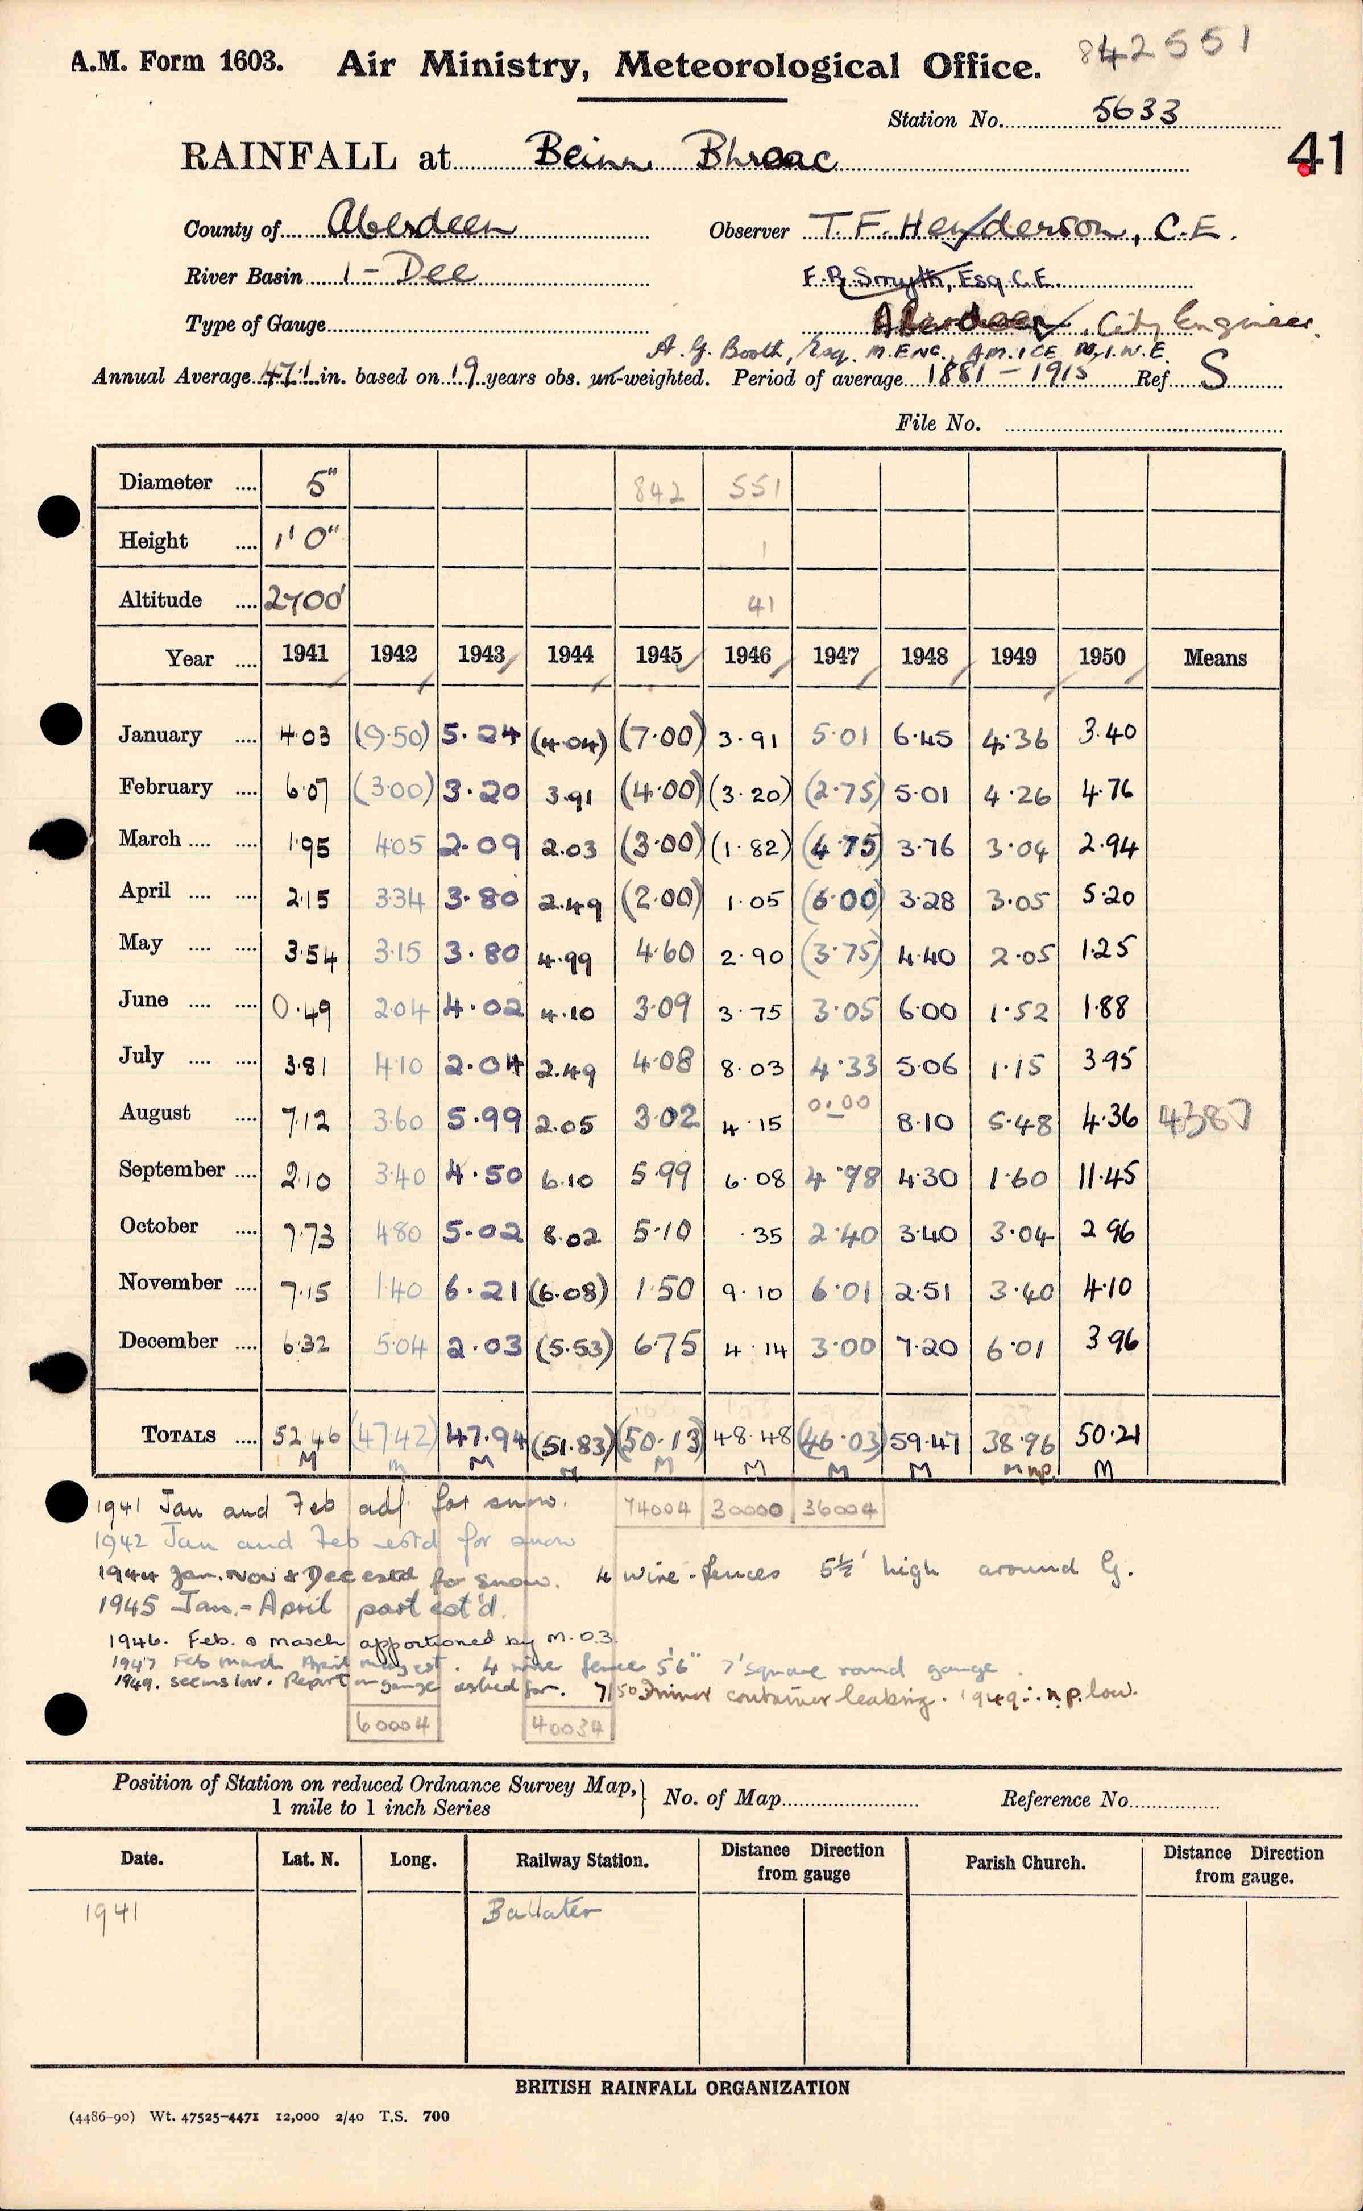 842551
A.M. Form 1603. Air Ministry, Meteorological Office.
Station No. 5633
RAINFALL at Beinn Bhreac
41
County of Aberdeen Observer T. F. Henderson, C.E.
River Basin 1 - Dee F.R. Smyth, Esq. C.E.
Type of Gauge Aberdeen, City Engineer.
A. G. Booth, Esq. M.ENG., A.M.I.C.E. M.I.W.E.
Annual Average 47.1 in. based on 19 years obs. un-weighted. Period of average 1881 - 1915 Ref S
File No.
Diameter 5" 842 551
Height 1' 0" 1
Altitude 2700' 41
Year 1941 1942 1943 1944 1945 1946 1947 1948 1949 1950 Means
January 4.03 (9.50) 5.24 (4.04) (7.00) 3.91 5.01 6.45 4.36 3.40
February 6.07 (3.00) 3.20 3.91 (4.00) (3.20) (2.75) 5.01 4.26 4.76
March 1.95 4.05 2.09 2.03 (3.00) (1.82) (4.75) 3.76 3.04 2.94
April 2.15 3.34 3.80 2.49 (2.00) 1.05 (6.00) 3.28 3.05 5.20
May 3.54 3.15 3.80 4.99 4.60 2.90 (3.75) 4.40 2.05 1.25
June 0.49 2.04 4.02 4.10 3.09 3.75 3.05 6.00 1.52 1.88
July 3.81 4.10 2.04 2.49 4.08 8.03 4.33 5.06 1.15 3.95
August 7.12 3.60 5.99 2.05 3.02 4.15 0.00 8.10 5.48 4.36 4387
September 2.10 3.40 4.50 6.10 5.99 6.08 4.98 4.30 1.60 11.45
October 7.73 4.80 5.02 8.02 5.10 .35 2.40 3.40 3.04 2.96
November 7.15 1.40 6.21 (6.08) 1.50 9.10 6.01 2.51 3.40 4.10
December 6.32 5.04 2.03 (5.53) 6.75 4.14 3.00 7.20 6.01 3.96
TOTALS 52.46 (47.42) 47.94 (51.83) (50.13) 48.48 (46.03) 59.47 38.96 50.21
M M M M M M M M M np. M
1941 Jan and Feb adj. for snow. 74004 30000 36004
1942 Jan and Feb estd for snow
1944 Jan. Nov & Dec estd for snow. 4 wire-fences 5½' high around G.
1945 Jan.-April part est'd.
1946. Feb. & March apportioned by M.O.3.
1947 Feb March April May est. 4 wire fence 5'6" 7' square round gauge.
1949. seems low. Report on gauge asked for. 7/50 Inner container leaking. 1949 ∴ n.p. low.
60004 40034
Position of Station on reduced Ordnance Survey Map, 1 mile to 1 inch Series } No. of Map Reference No.
Date. Lat. N. Long. Railway Station. Distance Direction from gauge Parish Church. Distance Direction from gauge.
1941 Ballater
BRITISH RAINFALL ORGANIZATION
(4486-90) Wt. 47525-4471 12,000 2/40 T.S. 700